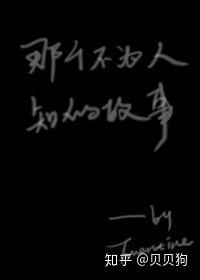 那个不为人
知的故事
—by
Twentine
知乎 @贝贝狗